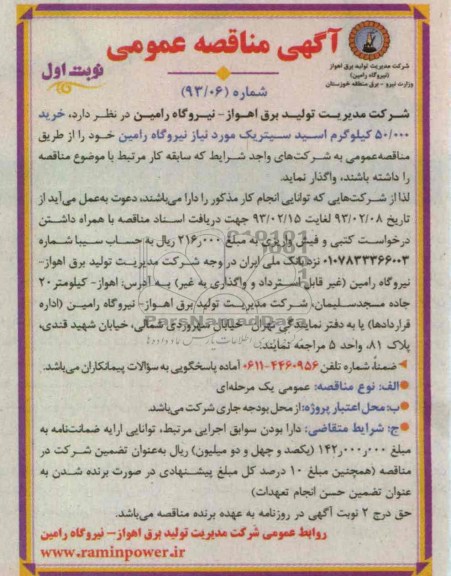 آگهی مناقصه عمومی
شرکت مدیریت تولید برق اهواز
(نیروگاه رامین)
وزارت نیرو - برق منطقه خوزستان
نوبت اول
شماره (۹۳/۰۶)
شرکت مدیریت تولید برق اهواز - نیروگاه رامین در نظر دارد، خرید
۵۰/۰۰۰ کیلوگرم اسید سیتریک مورد نیاز نیروگاه رامین خود را از طریق
مناقصه‌عمومی به شرکت‌های واجد شرایط که سابقه کار مرتبط با موضوع مناقصه
را داشته باشند، واگذار نماید.
لذا از شرکت‌هایی که توانایی انجام کار مذکور را دارا می‌باشند، دعوت به‌عمل می‌آید از
تاریخ ۹۳/۰۲/۰۸ لغایت ۹۳/۰۲/۱۵ جهت دریافت اسناد مناقصه با همراه داشتن
درخواست کتبی و فیش واریزی به مبلغ ۲۱۶٫۰۰۰ ریال به‌حساب سیبا شماره
۰۱۰۷۸۳۳۳۶۶۰۰۳ نزد بانک ملی ایران در وجه شرکت مدیریت تولید برق اهواز-
نیروگاه رامین (غیر قابل استرداد و واگذاری به غیر) به آدرس: اهواز- کیلومتر ۲۰
جاده مسجدسلیمان، شرکت مدیریت تولید برق اهواز- نیروگاه رامین (اداره
قراردادها) یا به دفتر نمایندگی تهران - خیابان سهروردی شمالی، خیابان شهید قندی،
پلاک ۸۱، واحد ۵ مراجعه نمایند.
ضمناً، شماره تلفن ۴۴۶۰۹۵۶-۰۶۱۱ آماده پاسخگویی به سؤالات پیمانکاران می‌باشد.
الف: نوع مناقصه: عمومی یک مرحله‌ای
ب: محل اعتبار پروژه: از محل بودجه جاری شرکت می‌باشد.
ج: شرایط متقاضی: دارا بودن سوابق اجرایی مرتبط، توانایی ارایه ضمانت‌نامه به
مبلغ ۱۴۲٫۰۰۰٫۰۰۰ (یکصد و چهل و دو میلیون) ریال به‌عنوان تضمین شرکت در
مناقصه (همچنین مبلغ ۱۰ درصد کل مبلغ پیشنهادی در صورت برنده شدن به
عنوان تضمین حسن انجام تعهدات)
حق درج ۲ نوبت آگهی در روزنامه به عهده برنده مناقصه می‌باشد.
روابط عمومی شرکت مدیریت تولید برق اهواز- نیروگاه رامین
www.raminpower.ir
ParsNamadData